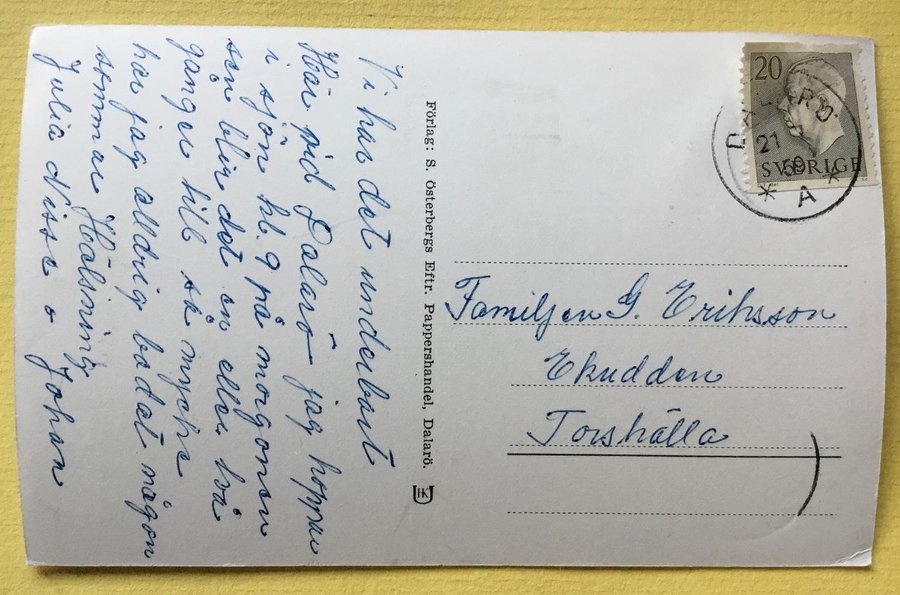 Vi har det underbart
Här vid Dalarö jag hoppar
i sjön kl. 9 på morgonen
sen blir det en eller två
gånger till så mycke
har jag aldrig badat någon
sommar Hälsning
Julia Nisse o Johan
Förlag: S. Österbergs Eftr. Pappershandel, Dalarö.
HK
20
SVERIGE
DALARÖ
21
59
* A *
Familjen G. Eriksson
Ekudden
Torshälla